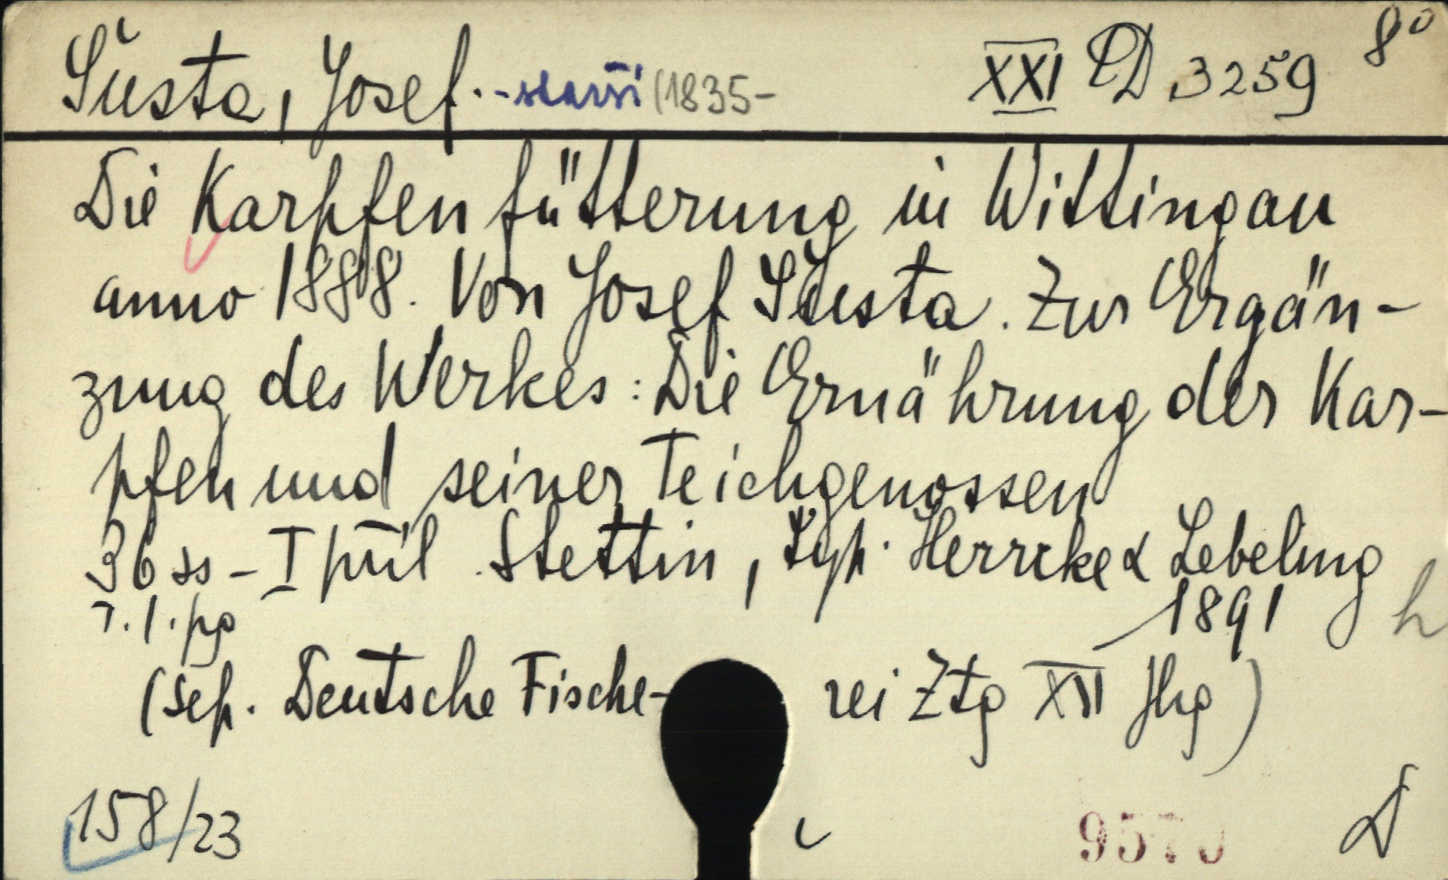 Šusta, Josef. - starší (1835- XXI D 3259 8°
Die Karpfenfütterung in Wittingau
anno 1888. Von Josef Šusta. Zur Ergän-
zung des Werkes: Die Ernährung der Kar-
pfen und seiner Teichgenossen
36 ss - I příl. Stettin, typ. Herrcke & Lebeling
r. 1. pg 1891 h
(sep. Deutsche Fische- rei Ztg XII Jhg)
158/23